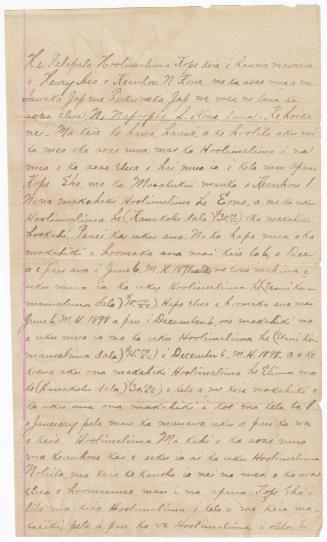 He Palapala Hoolimalima Kope keia i hanaia mawaena
o Henry Aea o Keauhou N. Kona no ka aoao mua a me
Jap me Jap no me na lana ka
aoao elua, No S. Kona lana. Ke hoike
nei. Ma keia ke hana, hanaia, a ke hoolilo aku nei
ka mea o ka aoao mua ma ka Hoolimalima i na
mea o ka aoao Elua i hai mua ia i kela mau Apana
Kope Eha, ma ka mauka o Keauhou 1
Nona makahiki Hoolimalima he Eono, a no ka uku
Hoolimalima he (Kanakolu dala) $30 00/100 o ka makahiki
hookahi. Penei ka uku ana. No ka hapa mua o ka
makahiki e hoomaka ana mai keia la 6, o Dec
a e pau ana i June 6, M.H. 1898 me eono mahina e
uku mua ia ka uku Hoolimalima he (Umi ku-
mamalima dala) $15 00/100 Hapa Elua e hoomaka ana mai
June 6, M.H. 1898 a pau i December 6, oia makahiki no
e uku mua ia no ka uku Hoolimalima he (Umi ku-
mamalima dala) $15 00/100 i December 6, M.H. 1898. a o ke
koena aku ona makahiki Hoolimalima he Elima ma
ke (Kanakolu dala) $30 00/100 o kela a me keia makahiki o
ka uku ana ona makahiki i koe ma kela la 1
o January pela mau ka manawa uku a pau ka wa
o keia Hoolimalima Ma kahi o ka aoao mua
ma Keauhou kai e uku ia ai ka uku Hoolimalima
Nolaila, ma keia ke kauoha ia nei na mea o ka aoao
Elua e hoomaemae mau i na apana Kope Eha i
lilo ma keia Hoolimalima i kela a me keia ma-
kahiki, pela a pau ka wa Hoolimalima